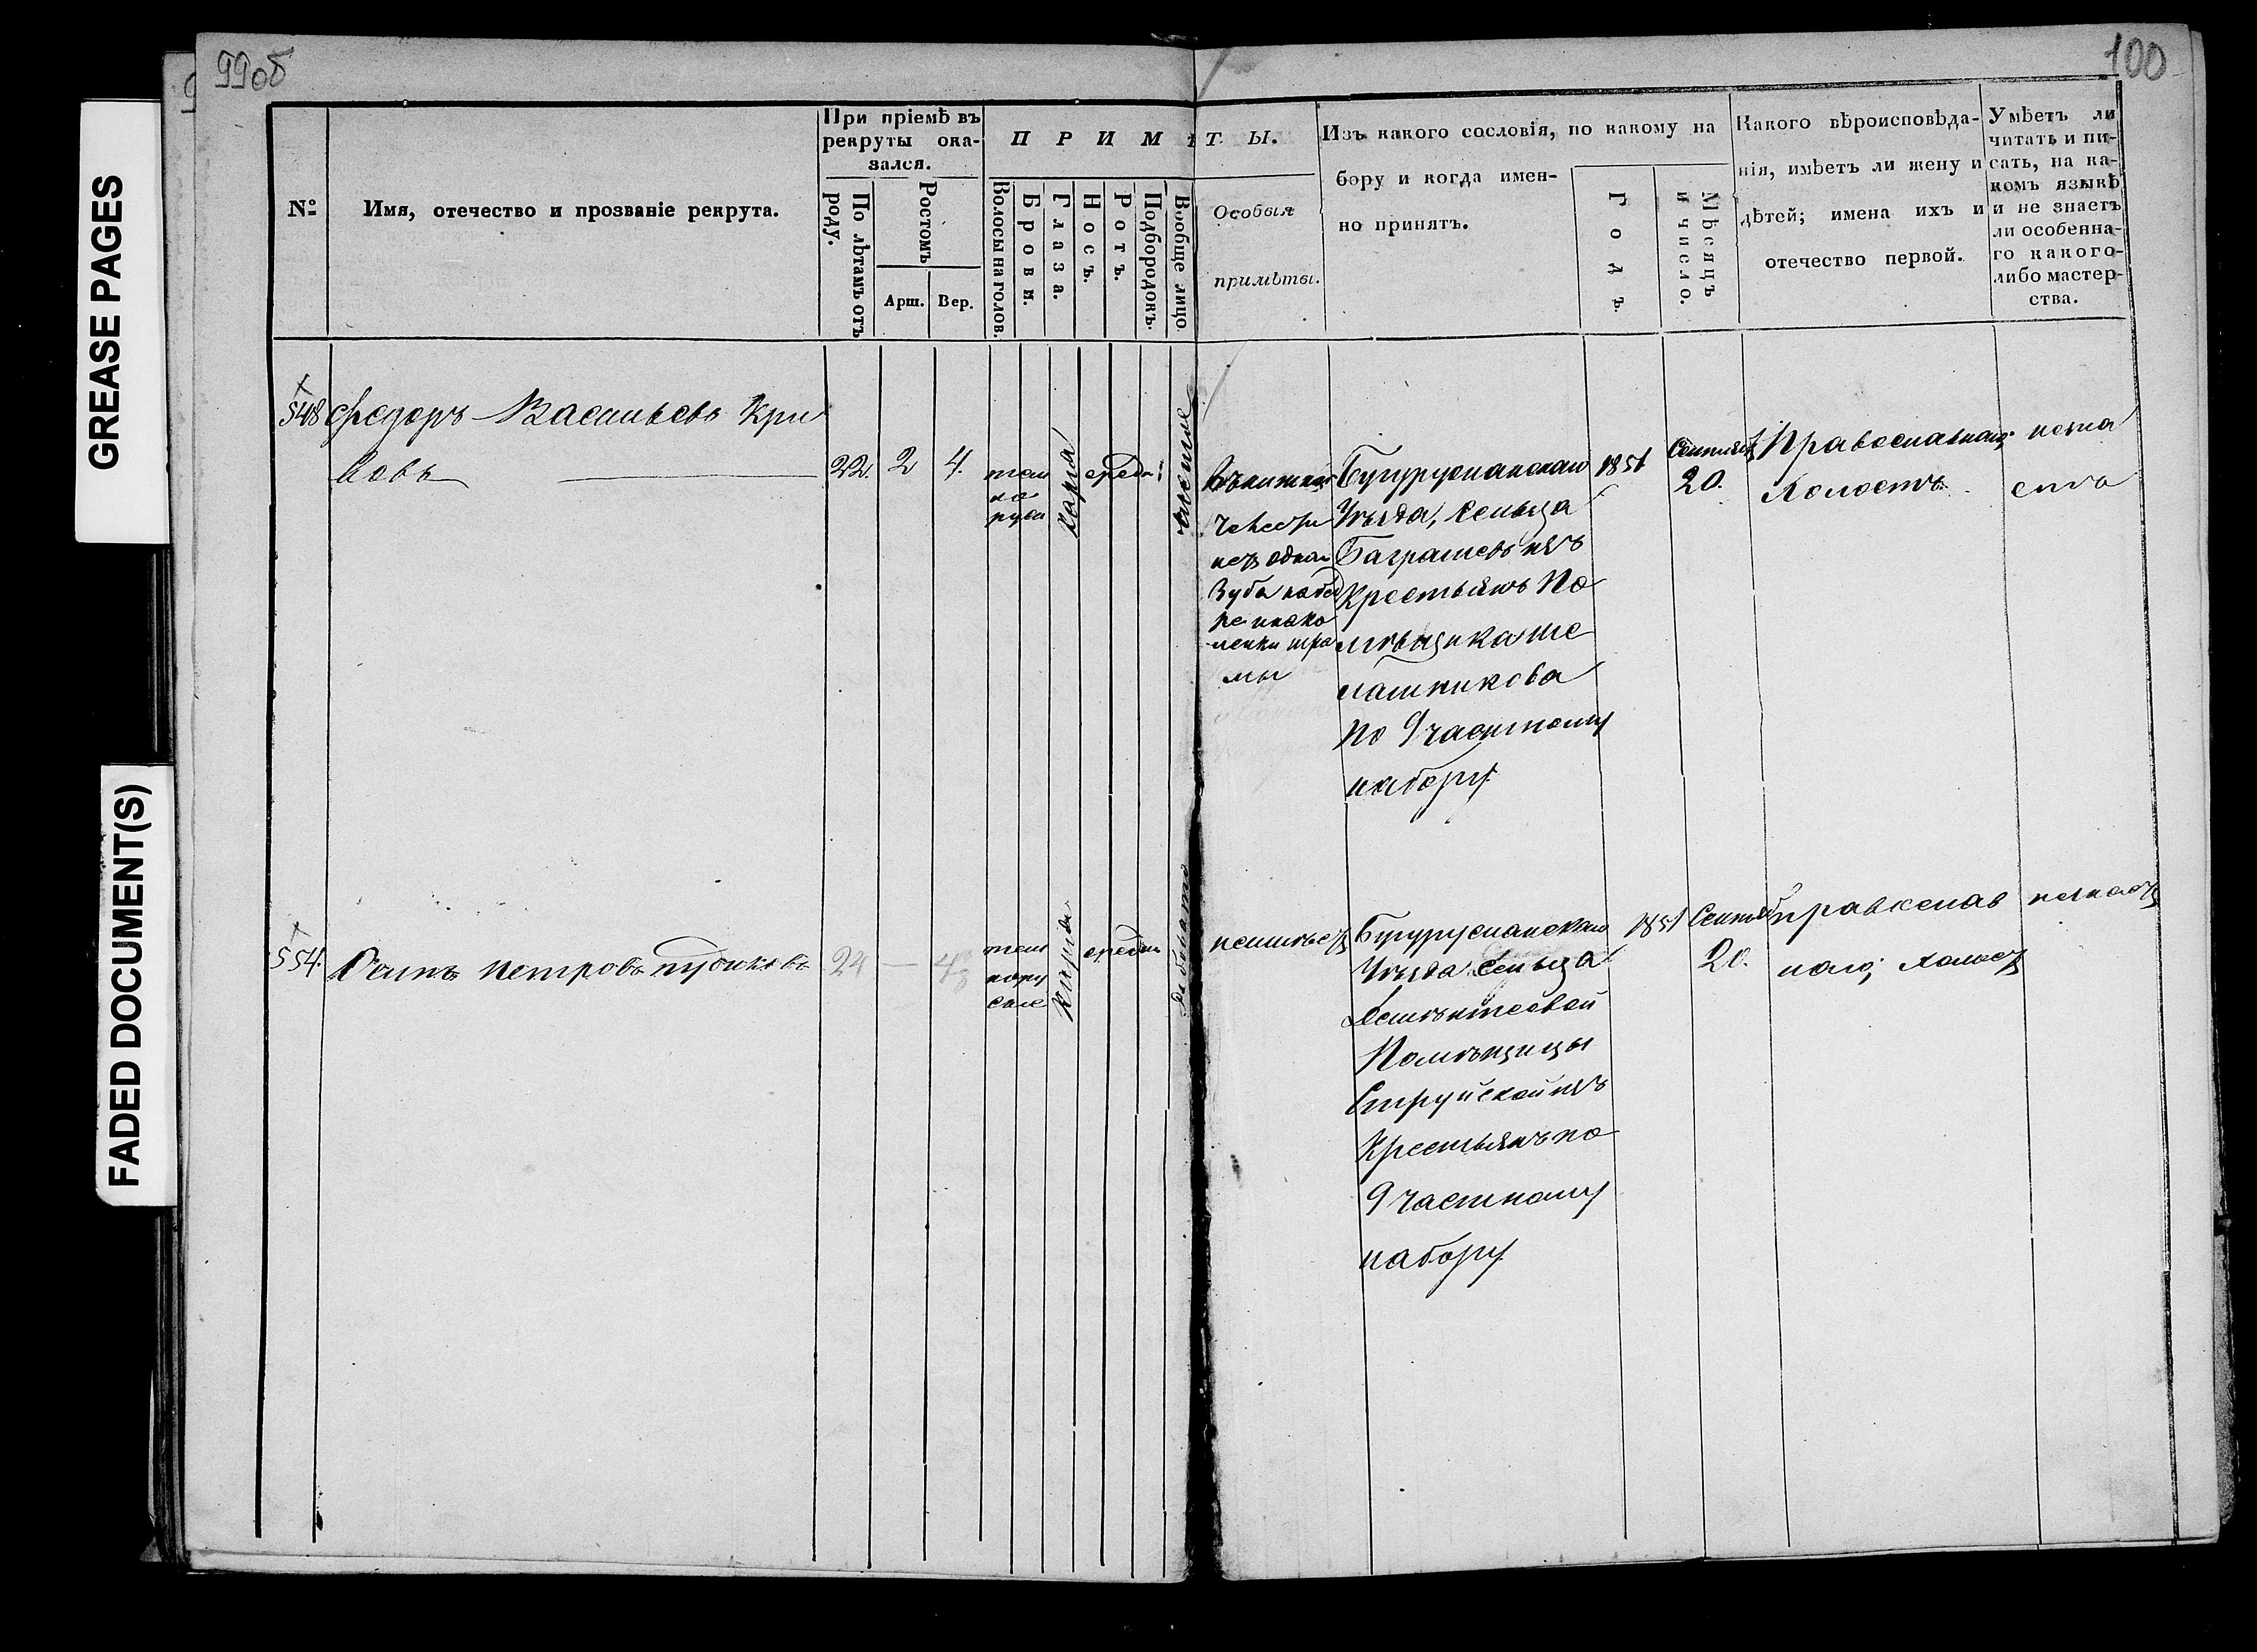 99об
100
GREASE PAGES
FADED DOCUMENT(S)
№
Имя, отечество и прозваніе рекрута.
При пріемѣ въ
рекруты ока-
зался.
По лѣтамъ отъ
роду.
Ростомъ
Арш.
Вер.
ПРИМѢТЫ.
Волосы на голов.
Брови.
Глаза.
Носъ.
Ротъ.
Подбородокъ.
Вообще лицо.
Особыя
примѣты.
Изъ какого сословія, по какому на
бору и когда имен-
но принятъ.
Годъ.
Мѣсяцъ
и число.
Какого вѣроисповѣда-
нія, имѣетъ ли жену и
дѣтей; имена ихъ и
отечество первой.
Умѣетъ ли
читать и пи-
сать, на ка-
комъ языкѣ
и не знаетъ
ли особенна-
го какого-
либо мастер-
ства.
548
Федоръ Васильевъ Кри
ковъ
22
2
4.
темно
русы
Каріа
средн:
чистое
нетъ одного
зуба
Бугурусланскаго
Уѣзда, сельца
изъ
Крестьянъ По
мѣщика
по 9 частному
набору
1851
Сентября
20.
Православнаго
Холостъ
554.
Осипъ Петровъ
24
—
темно
средн
неимѣетъ
Бугурусланскаго
Уѣзда сельца
Помѣщицы
Струйской изъ
Крестьянъ по
9 частному
набору
1851
Сентяб
20.
православ
наго; холостъ
незнаетъ